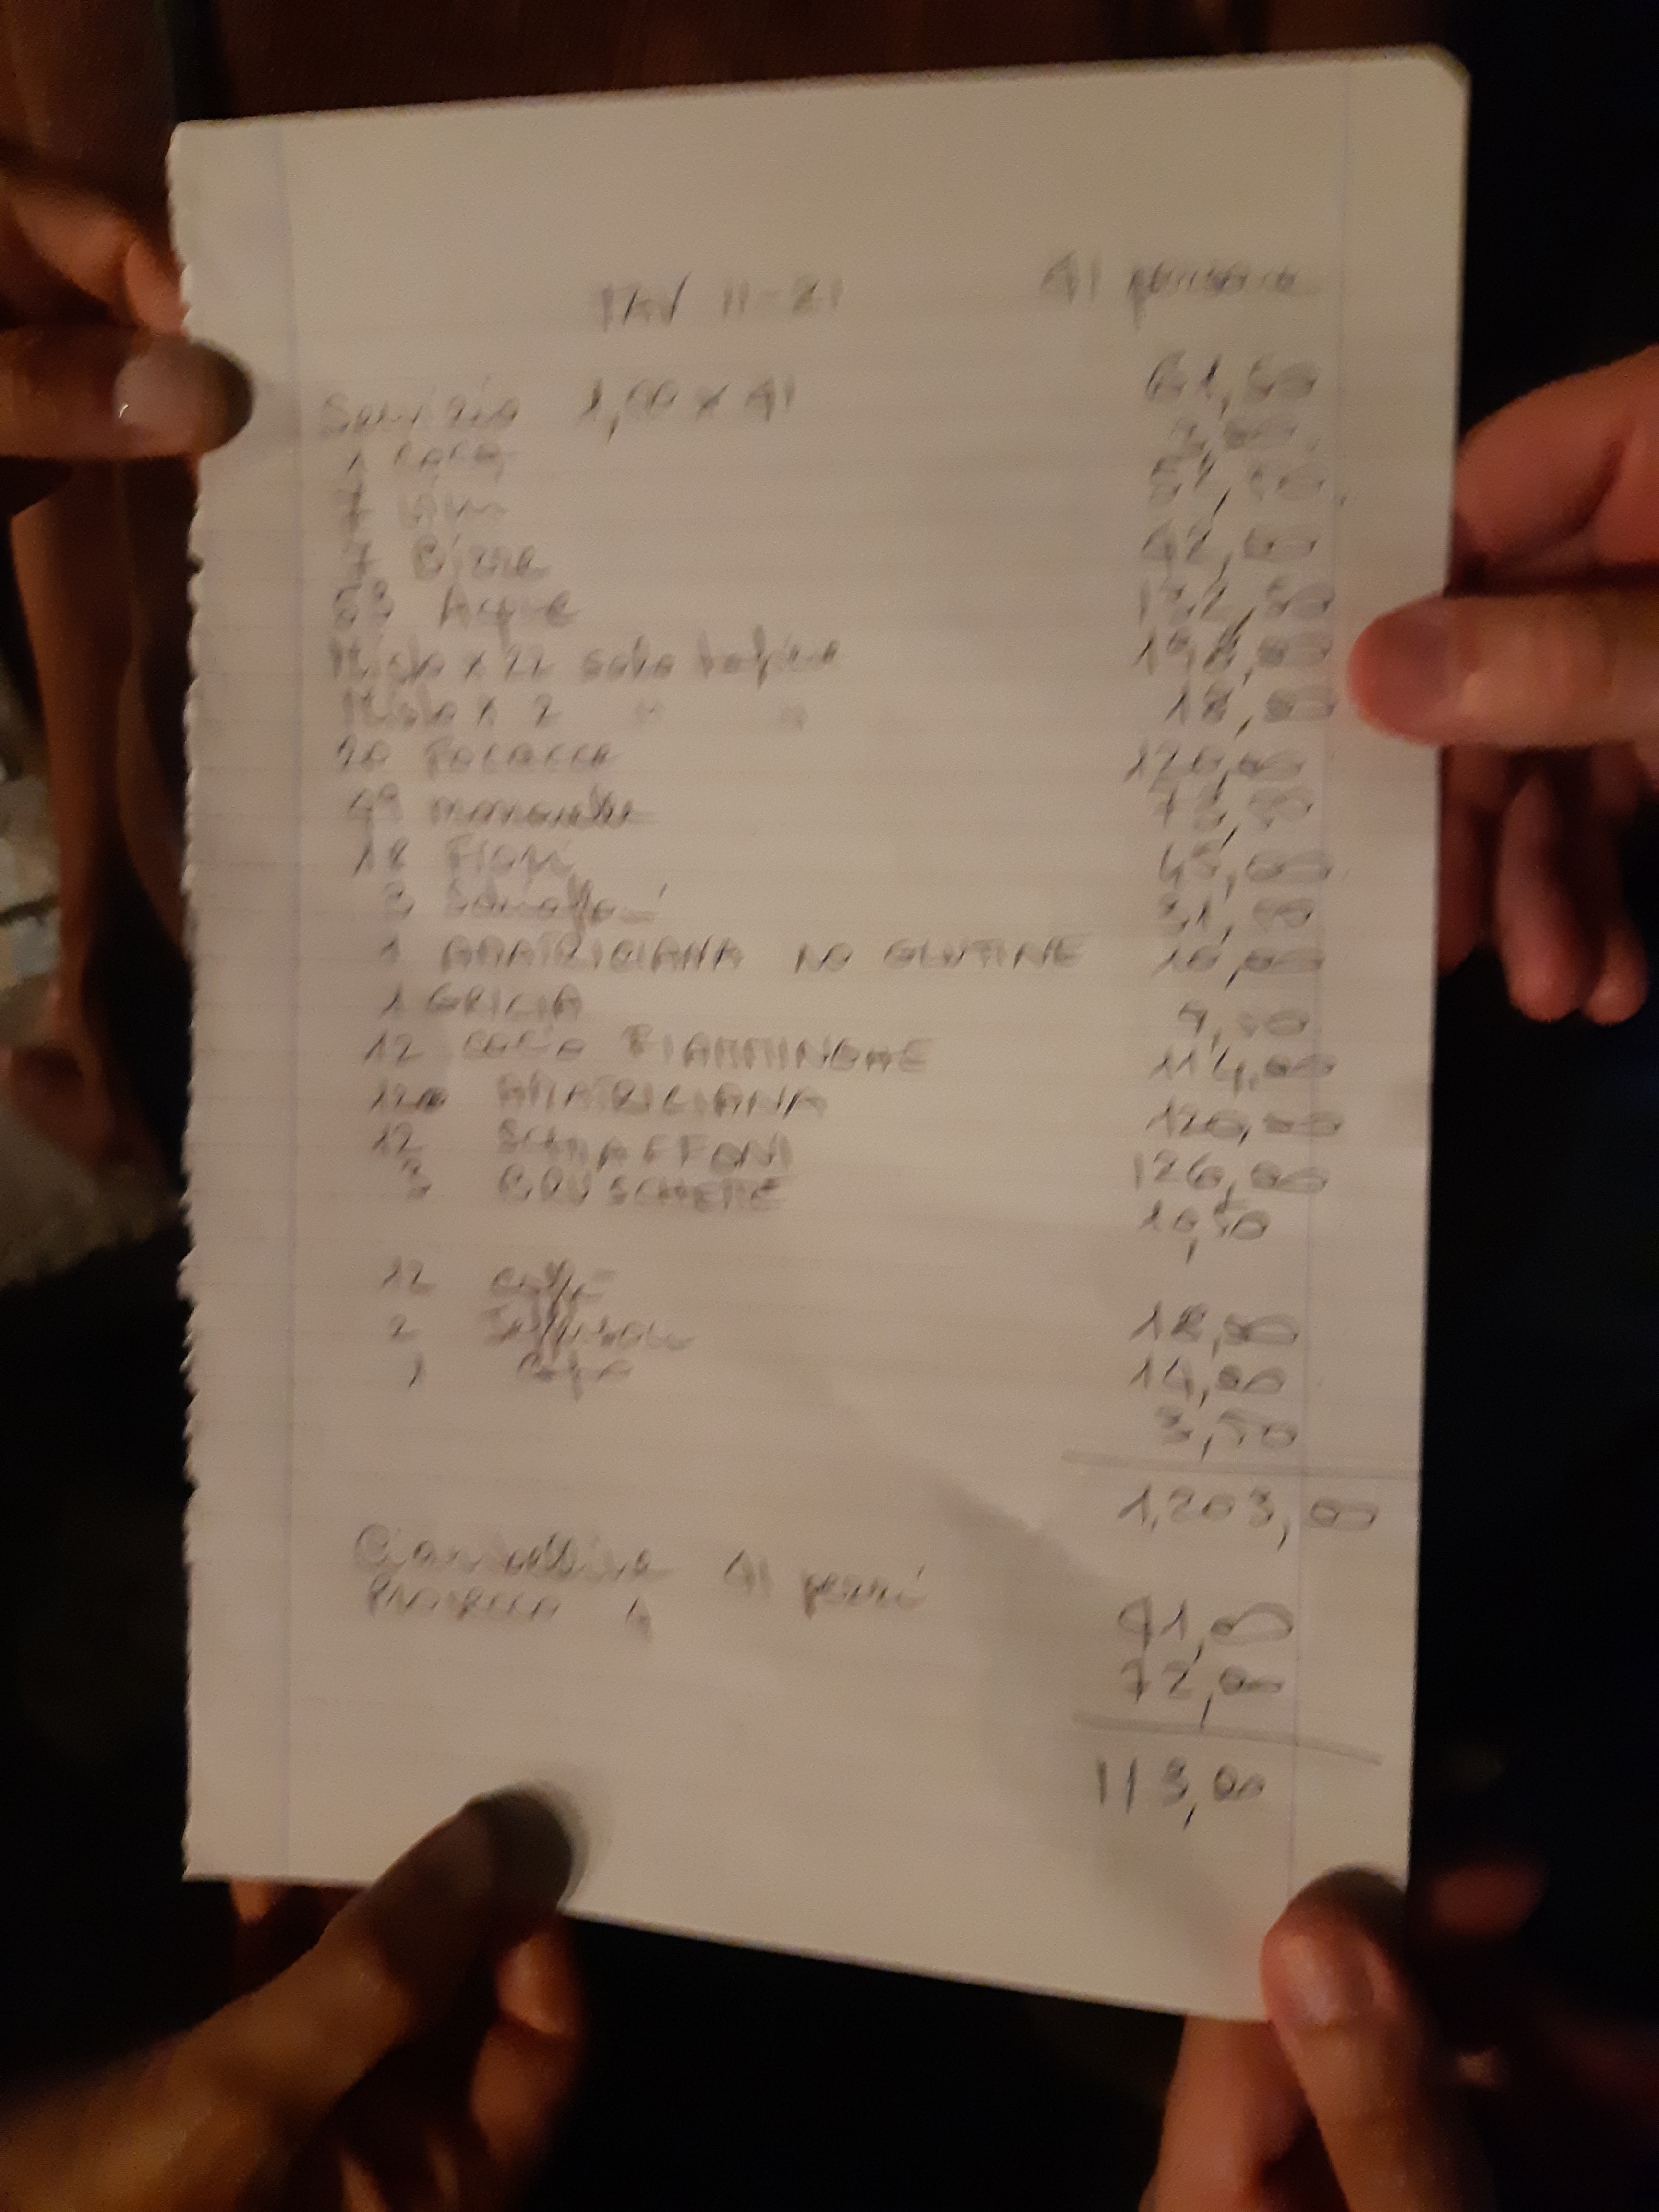 TAV 11-21 41 persone
Servizio 1,50 x 41 61,50
1 Coca 3,50
7 Vini 52,50
7 Birre 42,00
53 Acque 132,50
Misto x 22 solo tagliere 198,00
Misto x 2 " " 18,00
20 Focacce 120,00
49 73,50
18 Fiori 45,00
3 31,50
1 AMATRICIANA NO GLUTINE 10,00
1 GRICIA 9,50
12 CACIO FIAMMINGHE 114,00
12 AMATRICIANA 120,00
12 SCHIAFFONI 126,00
3 BRUSCHETTE 10,50
12 Caffè 18,00
2 14,00
1 Coca 3,50
1.203,00
Ciambelline 41 pezzi 41,00
Prosecco 4 72,00
113,00